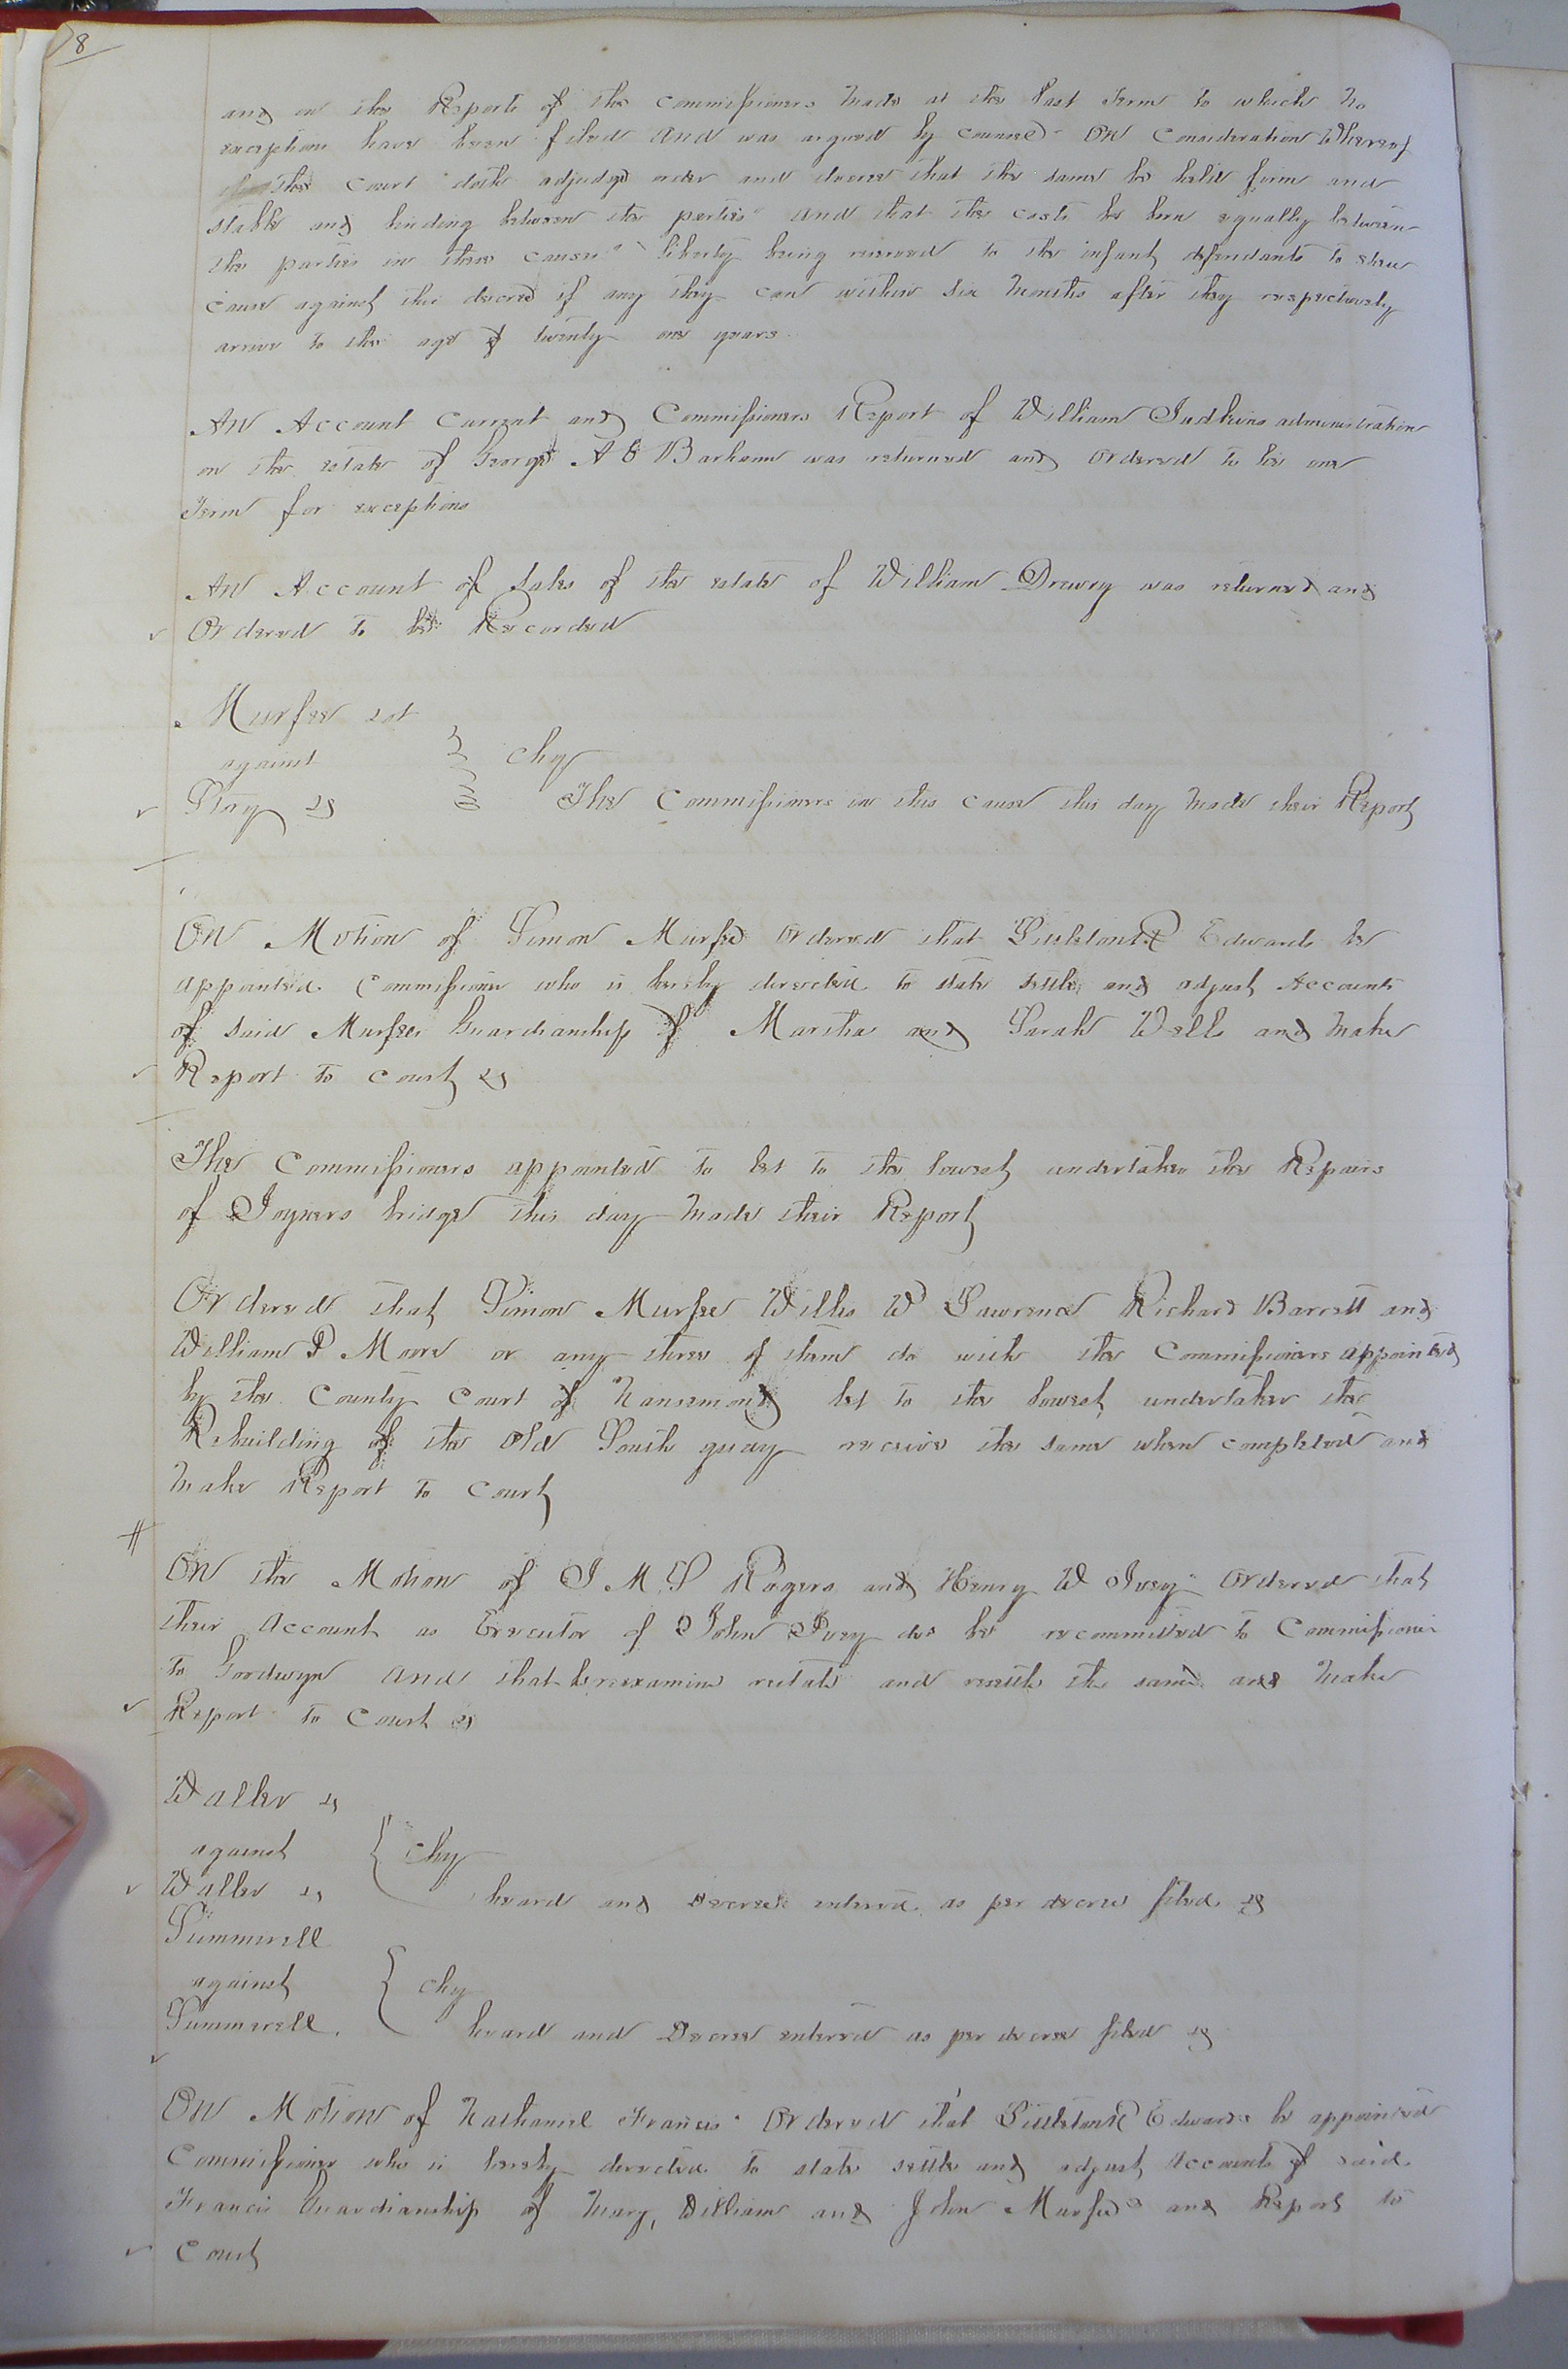 8
and on the Reports of the commissioners made at the last Term to which no
exceptions have been filed and was argued by counsel" On Consideration Whereof
the court doth adjudge order and decree that the same be held firm and
stable and binding between the parties" and that the costs be born equally between
the parties in these causes" liberty being reserved to the infant defendants to shew
cause against this decree if any they can within six months after they respectively
arrive to the age of twenty one years
An Account Current and Commissioners Report of William Judkins administration
on the estate of George A Barham was returned and Ordered to lie one
Term for exceptions
An Account of Sales of the estate of William Drewry was returned and
Ordered to be Recorded
Murfee et
against
chy
The Commissioners in this cause this day made their Report
On Motion of Simon Murfee Ordered that Littleton R Edwards be
appointed Commissioner who is hereby directed to state settle and adjust Accounts
of said Murfees Guardianship of Martha and Sarah Wells and make
Report to court &
The Commissioners appointed to let to the lowest undertaker the Repairs
of Joyners bridge this day made their Report
Ordered that Simon Murfee Willis W Lawrence Richard Barrett and
William P Moore or any three of them do with the Commissioners appointed
by the County Court of Nansemond let to the lowest undertaker the
Rebuilding of the old South quay receive the same when completed and
make Report to Court
On the Motion of J M S Rogers and Henry W Ivey" Ordered that
their Account as Executor of John Ivey dec be recommitted to Commissioner
to Goodwyn and that he reexamine restate and resettle the same and make
Report to Court &
Waller &
against
chy
Waller &
heard and Decree entered as per decree filed &
Summerell
against
chy
Summerell.
heard and Decree entered as per decree filed &
On Motion of Nathaniel Francis" Ordered that Littleton R Edwards be appointed
Commissioner who is hereby directed to state settle and adjust Accounts of said
Francis Guardianship of Mary, William and John Murfee and Report to
Court